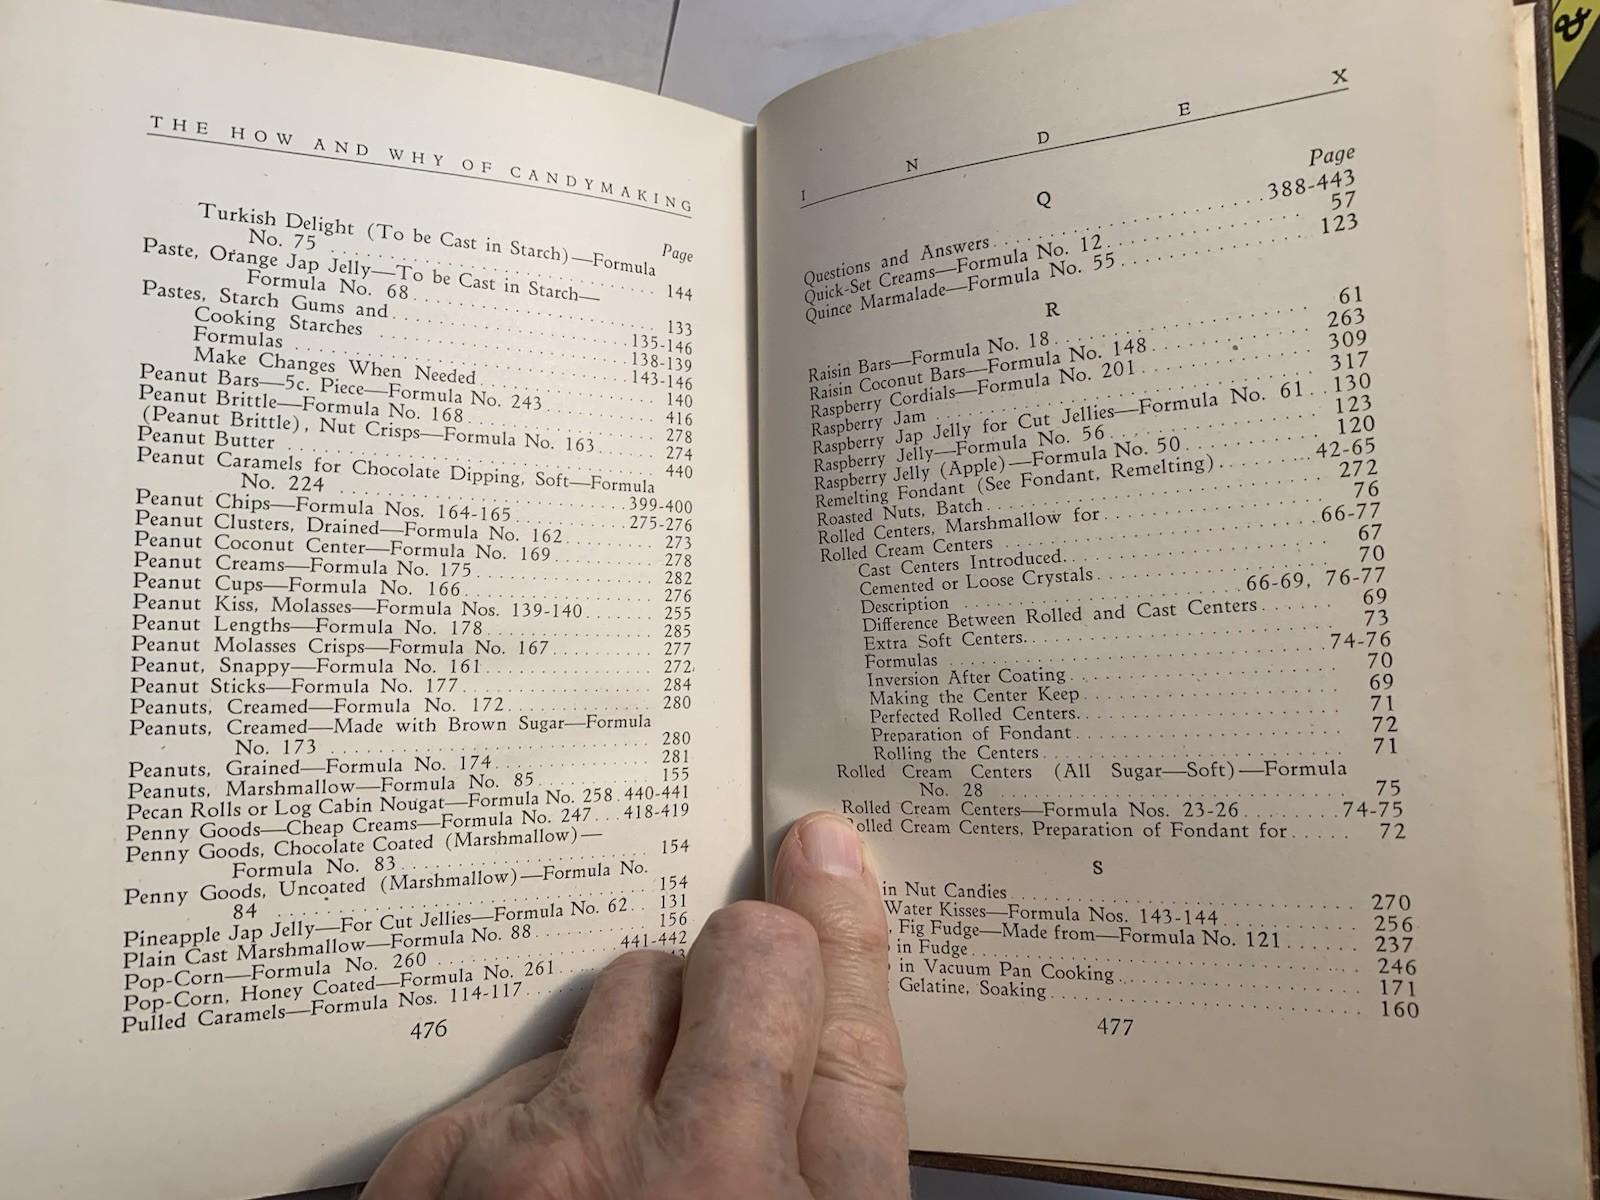 THE HOW AND WHY OF CANDYMAKING
Page
Turkish Delight (To be Cast in Starch)—Formula
No. 75 . . . . . . . . . . 144
Paste, Orange Jap Jelly—To be Cast in Starch—
Formula No. 68 . . . . . . . . . . 133
Pastes, Starch Gums and . . . . . . . . . . 135-146
Cooking Starches . . . . . . . . . . 138-139
Formulas . . . . . . . . . . 143-146
Make Changes When Needed . . . . . . . . . . 140
Peanut Bars—5c. Piece—Formula No. 243 . . . . . . . . . . 416
Peanut Brittle—Formula No. 168 . . . . . . . . . . 278
(Peanut Brittle), Nut Crisps—Formula No. 163 . . . . . . . . . . 274
Peanut Butter . . . . . . . . . . 440
Peanut Caramels for Chocolate Dipping, Soft—Formula
No. 224 . . . . . . . . . . 399-400
Peanut Chips—Formula Nos. 164-165 . . . . . . . . . . 275-276
Peanut Clusters, Drained—Formula No. 162 . . . . . . . . . . 273
Peanut Coconut Center—Formula No. 169 . . . . . . . . . . 278
Peanut Creams—Formula No. 175 . . . . . . . . . . 282
Peanut Cups—Formula No. 166 . . . . . . . . . . 276
Peanut Kiss, Molasses—Formula Nos. 139-140 . . . . . . . . . . 255
Peanut Lengths—Formula No. 178 . . . . . . . . . . 285
Peanut Molasses Crisps—Formula No. 167 . . . . . . . . . . 277
Peanut, Snappy—Formula No. 161 . . . . . . . . . . 272
Peanut Sticks—Formula No. 177 . . . . . . . . . . 284
Peanuts, Creamed—Formula No. 172 . . . . . . . . . . 280
Peanuts, Creamed—Made with Brown Sugar—Formula
No. 173 . . . . . . . . . . 280
Peanuts, Grained—Formula No. 174 . . . . . . . . . . 281
Peanuts, Marshmallow—Formula No. 85 . . . . . . . . . . 155
Pecan Rolls or Log Cabin Nougat—Formula No. 258 . 440-441
Penny Goods—Cheap Creams—Formula No. 247 . . . 418-419
Penny Goods, Chocolate Coated (Marshmallow)—
Formula No. 83 . . . . . . . . . . 154
Penny Goods, Uncoated (Marshmallow)—Formula No.
84 . . . . . . . . . . 154
Pineapple Jap Jelly—For Cut Jellies—Formula No. 62 . . 131
Plain Cast Marshmallow—Formula No. 88 . . . . . . . . . . 156
Pop-Corn—Formula No. 260 . . . . . . . . . . 441-442
Pop-Corn, Honey Coated—Formula No. 261 . . .
Pulled Caramels—Formula Nos. 114-117 . . . . . .
476
INDEX
Page
Q
Questions and Answers . . . . . . . . . . 388-443
Quick-Set Creams—Formula No. 12 . . . . . . . . . . 57
Quince Marmalade—Formula No. 55 . . . . . . . . . . 123
R
Raisin Bars—Formula No. 18 . . . . . . . . . . 61
Raisin Coconut Bars—Formula No. 148 . . . . . . . . . . 263
Raspberry Cordials—Formula No. 201 . . . . . . . . . . 309
Raspberry Jam . . . . . . . . . . 317
Raspberry Jap Jelly for Cut Jellies—Formula No. 61 . . 130
Raspberry Jelly—Formula No. 56 . . . . . . . . . . 123
Raspberry Jelly (Apple)—Formula No. 50 . . . . . . . . . . 120
Remelting Fondant (See Fondant, Remelting) . . . . . . . . . . 42-65
Roasted Nuts, Batch . . . . . . . . . . 272
Rolled Centers, Marshmallow for . . . . . . . . . . 76
Rolled Cream Centers . . . . . . . . . . 66-77
Cast Centers Introduced . . . . . . . . . . 67
Cemented or Loose Crystals . . . . . . . . . . 70
Description . . . . . . . . . . 66-69, 76-77
Difference Between Rolled and Cast Centers . . . . . . 69
Extra Soft Centers . . . . . . . . . . 73
Formulas . . . . . . . . . . 74-76
Inversion After Coating . . . . . . . . . . 70
Making the Center Keep . . . . . . . . . . 69
Perfected Rolled Centers . . . . . . . . . . 71
Preparation of Fondant . . . . . . . . . . 72
Rolling the Centers . . . . . . . . . . 71
Rolled Cream Centers (All Sugar—Soft)—Formula
No. 28 . . . . . . . . . . 75
Rolled Cream Centers—Formula Nos. 23-26 . . . . . . . . . 74-75
olled Cream Centers, Preparation of Fondant for . . . . . 72
S
in Nut Candies . . . . . . . . . . 270
Water Kisses—Formula Nos. 143-144 . . . . . . . . . . 256
, Fig Fudge—Made from—Formula No. 121 . . . . . . 237
in Fudge . . . . . . . . . . 246
in Vacuum Pan Cooking . . . . . . . . . . 171
Gelatine, Soaking . . . . . . . . . . 160
477
&